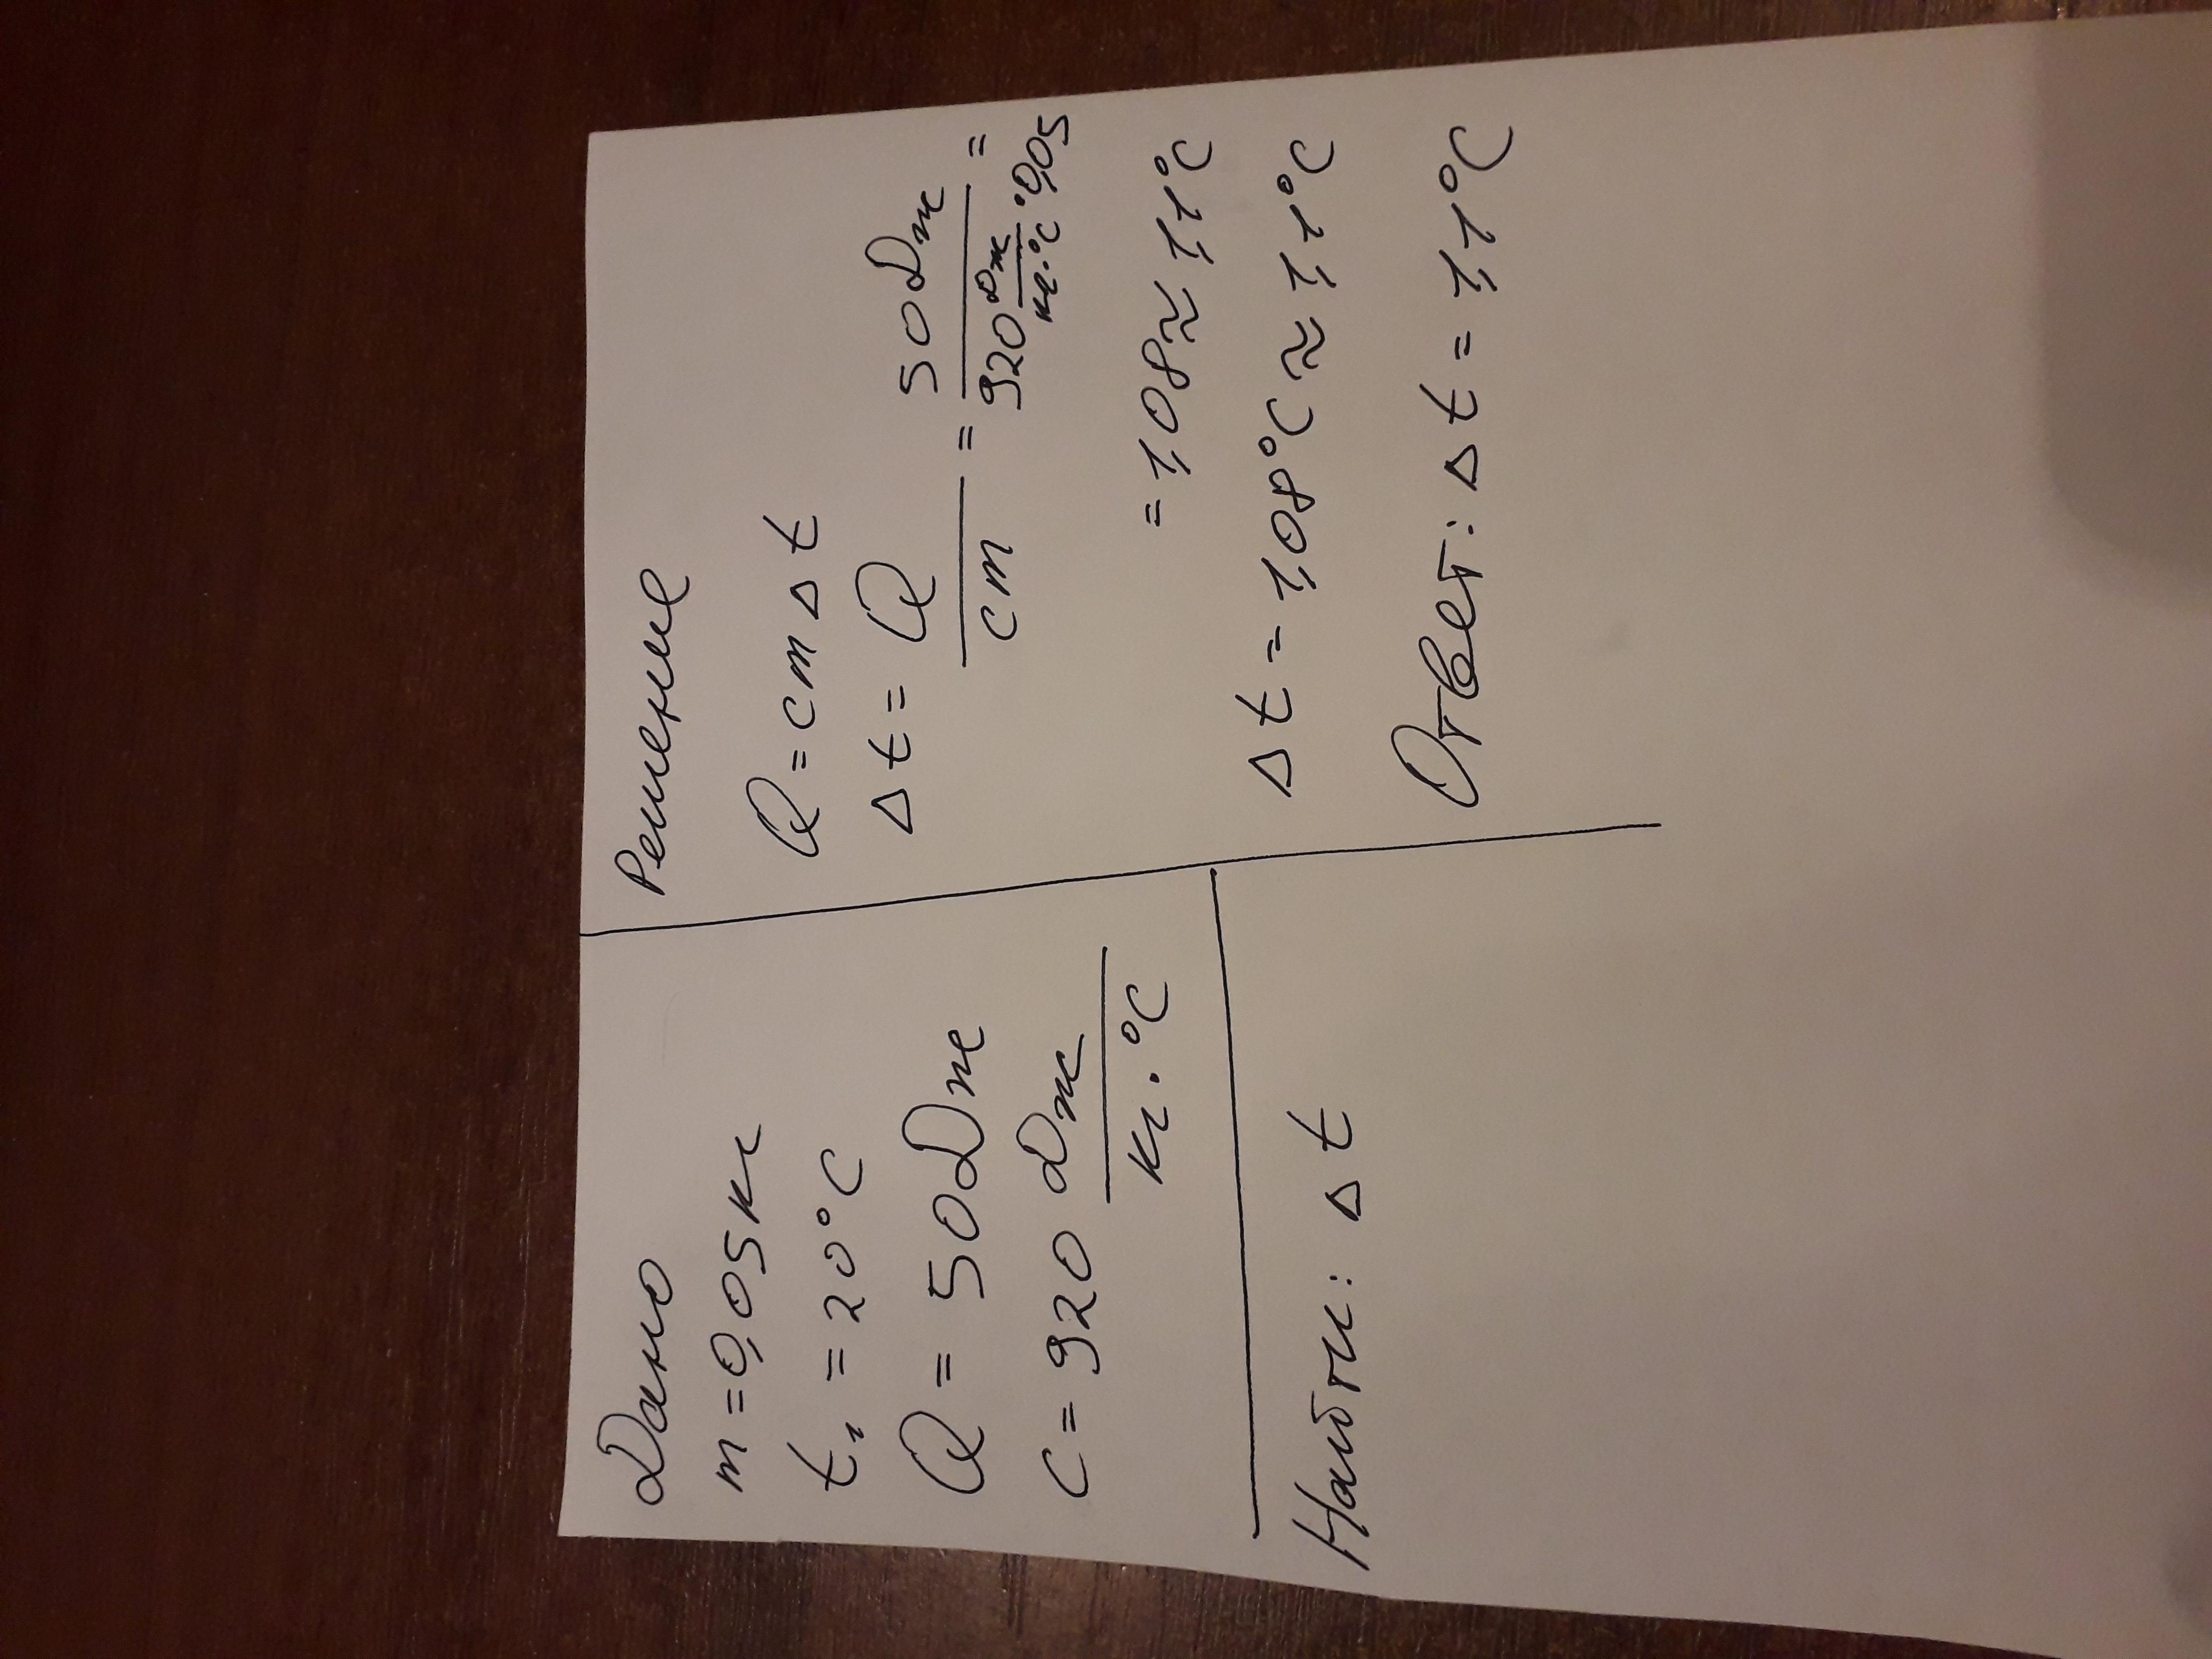 Дано
m = 0,05 кг
t₁ = 20°C
Q = 50 Дж
c = 920 Дж
кг · °C
Найти: Δt
Решение
Q = cmΔt
Δt = Q = 50 Дж =
cm 920 Дж · 0,05
кг·°C
= 1,08 ≈ 1,1°C
Δt = 1,08°C ≈ 1,1°C
Ответ: Δt = 1,1°C